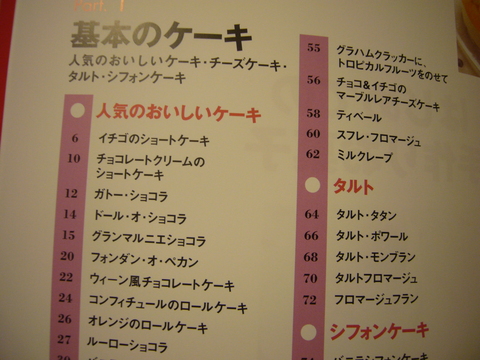 Part. 1
基本のケーキ
人気のおいしいケーキ・チーズケーキ・
タルト・シフォンケーキ
人気のおいしいケーキ
6 イチゴのショートケーキ
10 チョコレートクリームの
ショートケーキ
12 ガトー・ショコラ
14 ドール・オ・ショコラ
15 グランマルニエショコラ
20 フォンダン・オ・ペカン
22 ウィーン風チョコレートケーキ
24 コンフィチュールのロールケーキ
26 オレンジのロールケーキ
27 ルーローショコラ
55 グラハムクラッカーに、
トロピカルフルーツをのせて
56 チョコ&イチゴの
マーブルレアチーズケーキ
58 ティベール
60 スフレ・フロマージュ
62 ミルクレープ
タルト
64 タルト・タタン
66 タルト・ポワール
68 タルト・モンブラン
70 タルトフロマージュ
72 フロマージュフラン
シフォンケーキ